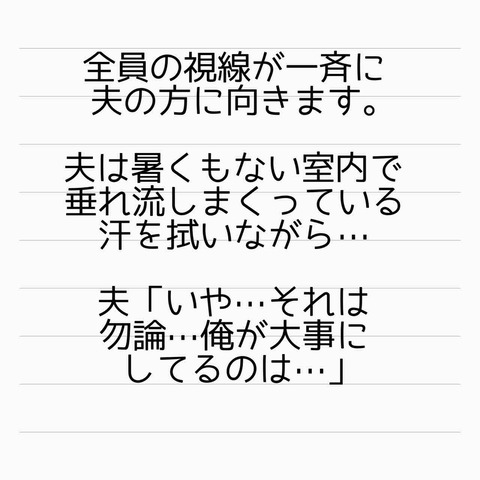 全員の視線が一斉に
夫の方に向きます。
夫は暑くもない室内で
垂れ流しまくっている
汗を拭いながら…
夫「いや…それは
勿論…俺が大事に
してるのは…」